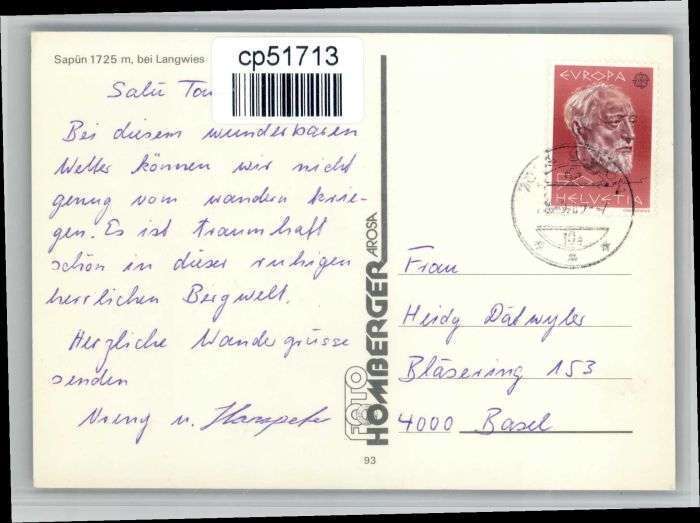 Sapün 1725 m, bei Langwies
cp51713
Salü
Bei diesem wunderbaren
Wetter können wir nicht
genug vom wandern krie-
gen. Es ist traumhaft
schön in dieser ruhigen
herrlichen Bergwelt.
Herzliche Wandergrüsse
senden
Vreny u. Hanspeter
FOTO
HOMBERGER AROSA
93
EVROPA
HELVETIA
Frau
Heidy Dätwyler
Bläsiring 153
4000 Basel